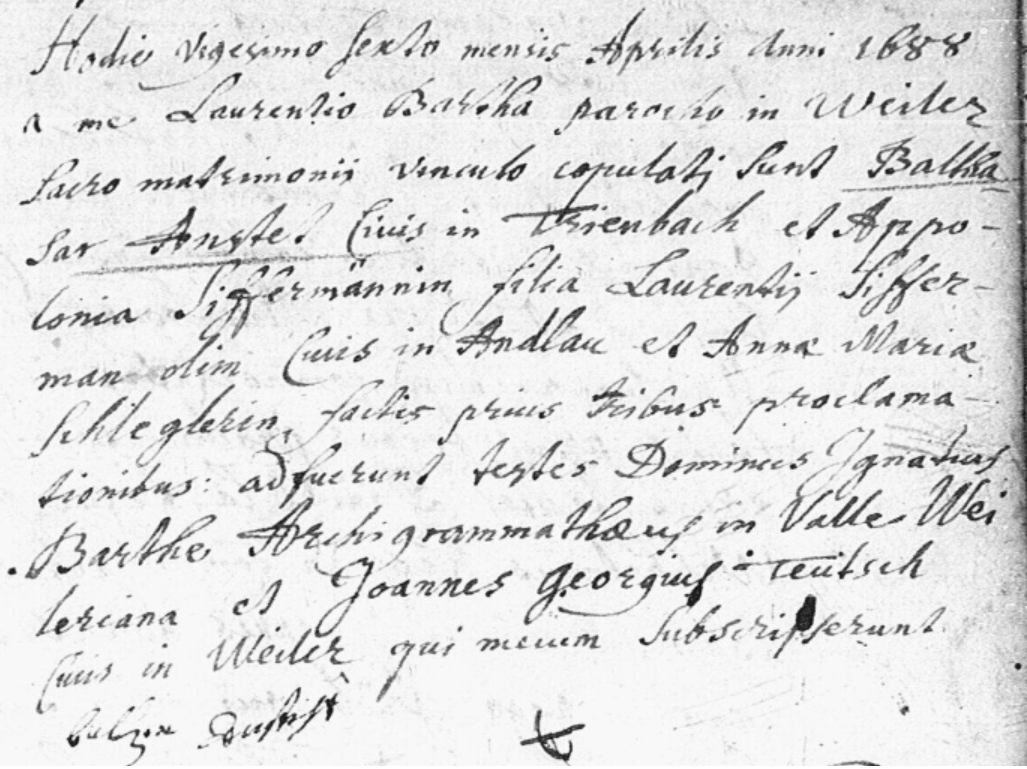 Hodie vigesimo sexto mensis Aprilis Anni 1688
a me Laurentio Bartha parocho in Weiler
sacro matrimonii vinculo copulatj sunt Baltha
sar Anstet Civis in Trienbach et Appo-
lonia Siffermännin filia Laurentij Siffer-
man olim Civis in Andlau et Annæ Mariæ
schleglerin, factis prius tribus proclama-
tionibus: adfuerunt testes Dominus Ignatius
Barthe Archigrammathæus in Valle Wei
leriana et Joannes Georgius Teutsch
Civis in Weiler qui mecum subscripserunt